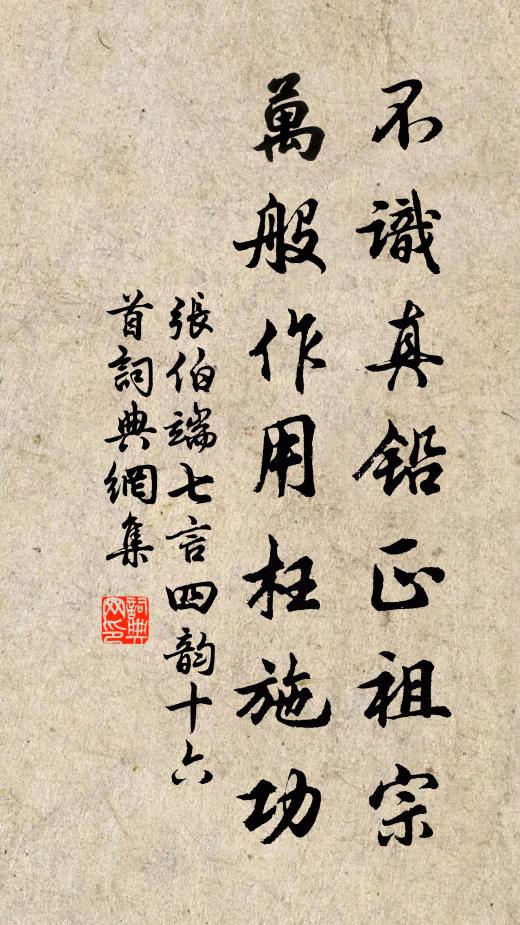 不識真鉛正祖宗
萬般作用枉施功
張伯端七言四韵十六
首詞典網集
詞典
网印